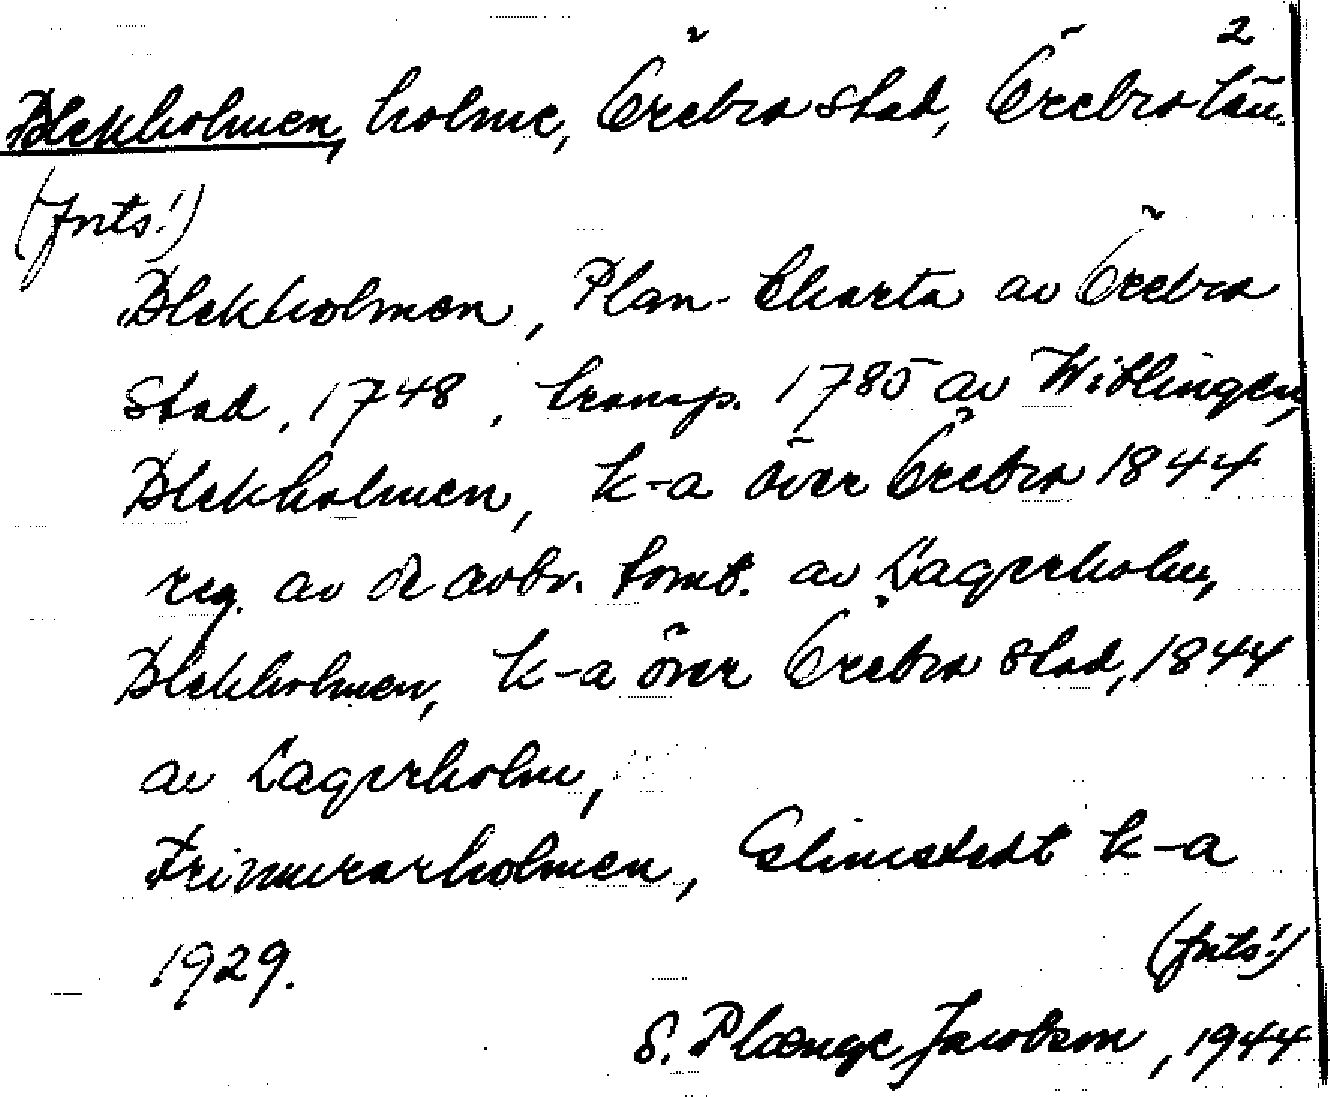 2
Blekholmen, holme, Örebro stad, Örebro län.
(forts!)
Blekholmen, Plan-Charta av Örebro
Stad, 1748, transp. 1785 av Wiblingen,
Blekholmen, k-a över Örebro 1844
reg. av de avbr. tomt. av Lagerholm,
Blekholmen, k-a över Örebro stad, 1844
av Lagerholm,
Frimurarholmen, Elmstedt k-a
1929.
(forts!)
S. Plænge Jacobson, 1944